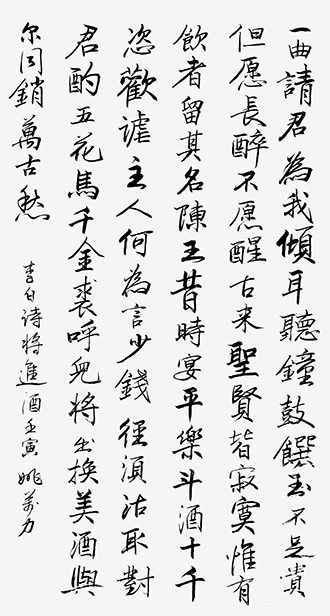 一曲請君為我傾耳聽鐘鼓饌玉不足貴
但愿長醉不愿醒古来聖賢皆寂寞惟有
飲者留其名陳王昔時宴平樂斗酒十千
恣歡謔主人何為言少錢徑須沽取對
君酌五花馬千金裘呼兒將出換美酒與
尔同銷萬古愁
李白诗將進酒壬寅姚萬力